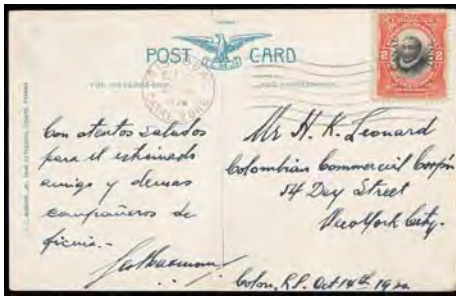 POST CARD
CANAL ZONE
2 2
Con atentos saludos
para el estimado
amigo y demas
compañeros de
Mr H. K. Leonard
Colombian Commercial Corpõn
54 Dey Street
New York City.
Colon, R.P. Oct 14th 1920.